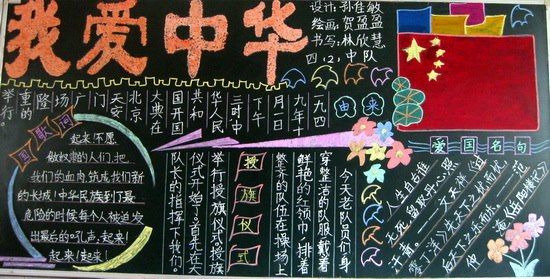 我爱中华
设计:孙佳敏
绘画:贺盈盈
书写:林欣慧
四(2)中队
由来
一九四
九年十
月一日
下午
三时中
华人民
共和
国开国
大典在
北京
天安
门
广
场
隆
重的
举行。
国歌词
起来!不愿
做奴隶的人们,把
我们的血肉,筑成我们新
的长城!中华民族到了最
危险的时候每个人被迫发
出最后的吼声,起来!
起来!起来!
授旗仪式
今天老队员们身
穿整洁的队服戴着
鲜艳的红领巾,排着
整齐的队伍在操场上
举行授旗仪式授旗
仪式开始了首先在大
队长的指挥下我们。
爱国名句
人生自古谁
无死,留取丹心照
汗青。——文天祥《过
零丁洋》先天下之忧而忧
后天下之乐而乐。——范
淹《岳阳楼记》